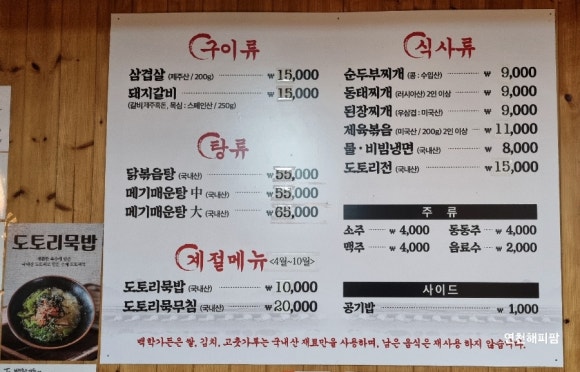 구이류
삼겹살 (제주산 / 200g) ₩ 15,000
돼지갈비 ₩ 15,000
(갈비:제주흑돈, 목심 : 스페인산 / 250g)
탕류
닭볶음탕 (국내산) ₩ 55,000
메기매운탕 中 (국내산) ₩ 55,000
메기매운탕 大 (국내산) ₩ 65,000
계절메뉴 <4월~10월>
도토리묵밥 (국내산) ₩ 10,000
도토리묵무침 (국내산) ₩ 20,000
식사류
순두부찌개 (콩 : 수입산) ₩ 9,000
동태찌개 (러시아산) 2인 이상 ₩ 9,000
된장찌개 (우삼겹 : 미국산) ₩ 9,000
제육볶음 (미국산 / 200g) 2인 이상 ₩ 11,000
물 · 비빔냉면 (국내산) ₩ 8,000
도토리전 (국내산) ₩ 15,000
주 류
소주 ₩ 4,000 동동주 ₩ 4,000
맥주 ₩ 4,000 음료수 ₩ 2,000
사이드
공기밥 ₩ 1,000
백학가든은 쌀, 김치, 고춧가루는 국내산 재료만을 사용하며, 남은 음식은 재사용 하지 않습니다.
도토리묵밥
연천해피팜